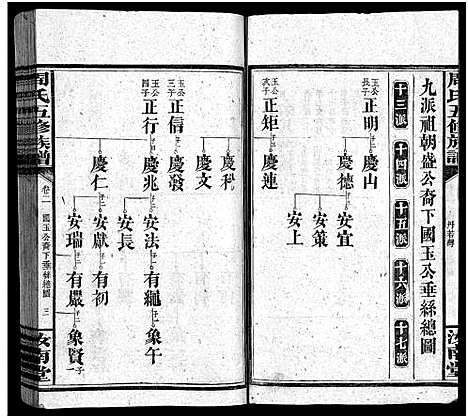 周氏五修族譜
九派祖朝盛公裔下國玉公垂絲總圖
十三派
十四派
十五派
十六派
十七派
玉公長子
正明
慶山
慶德
安宜
安策
安上
玉公次子
正矩
慶連
慶秋
慶文
玉公三子
正信
慶發
玉公四子
正行
慶兆
安法
有繩
象午
安長
慶仁
安獻
有初
安瑞
有嚴
象賢
一子
周氏五修族譜
卷二
國玉公裔下垂絲總圖
三
汝南堂
汝南堂